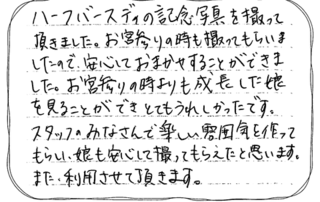 ハーフバースディの記念写真を撮って
頂きました。お宮参りの時も撮ってもらいま
したので、安心しておまかせすることができま
した。お宮参りの時よりも成長した娘
を見ることができとてもうれしかったです。
スタッフのみなさんで楽しい雰囲気を作って
もらい、娘も安心して撮ってもらえたと思います。
また、利用させて頂きます。